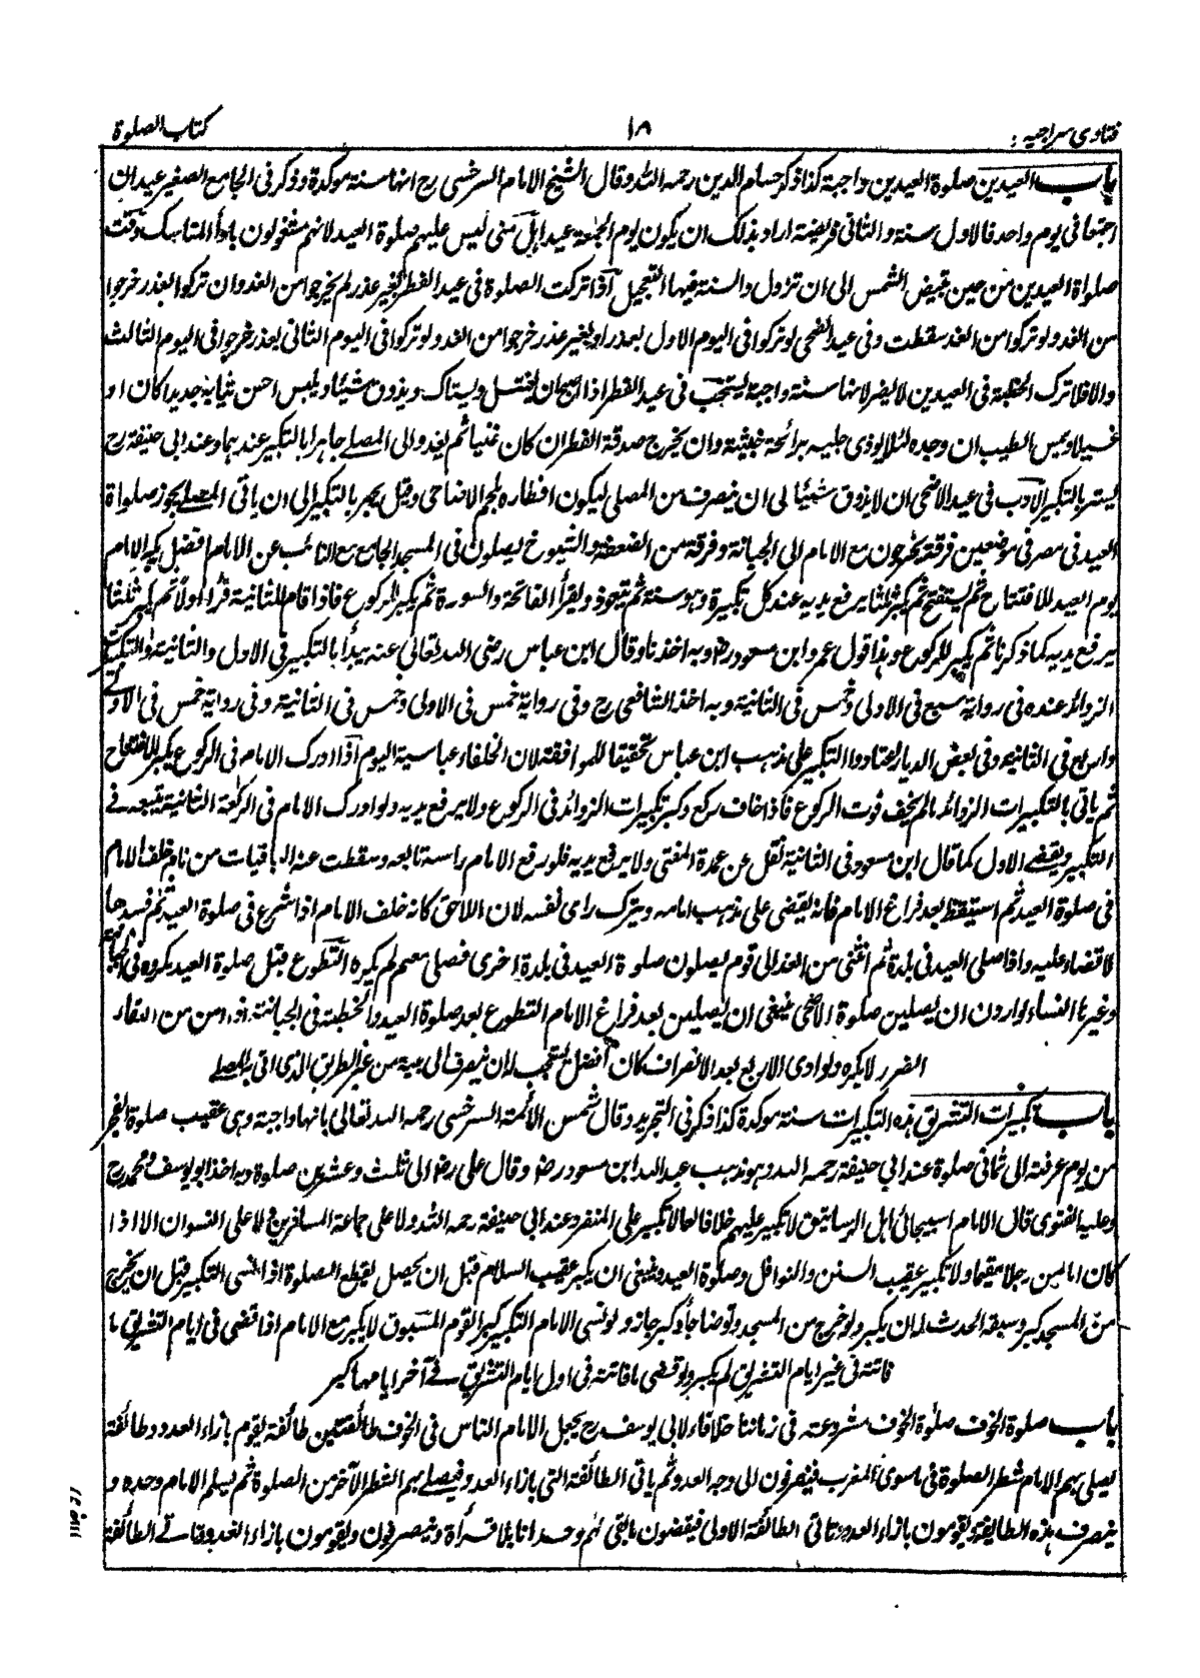 فتاوى سراجيه : ١٨ كتاب الصلوة
باب العيدين صلوة العيدين واجبة كذا ذكر حسام الدين رحمه الله وقال الشيخ الامام السرخسى رح انها سنة موكدة وذكر فى الجامع الصغير عيدان
اجتمعا فى يوم واحد فالاول سنة والثانى فريضة اراد بذلك ان يكون يوم الجمعة عيد اهل منى ليس عليهم صلوة العيد لانهم مشغولون باداء المناسك وقت
صلواة العيدين من حين تبيض الشمس الى ان تزول والسنة فيها التعجيل اذا تركت الصلوة فى عيد الفطر بغير عذر لم يخرجوا من الغد وان تركوا لعذر خرجوا
من الغد ولو تركوا من الغد سقطت وفى عيد الضحى لو تركوا فى اليوم الاول بعذر او بغير عذر خرجوا من الغد ولو تركوا فى اليوم الثانى بعذر خرجوا فى اليوم الثالث
والا فلا ترك الخطبة فى العيدين لا يضر لانها سنة واجبة يستحب فى عيد الفطر اذا اصبح ان يغتسل ويستاك ويذوق شيئا ويلبس احسن ثيابه جديدا كان او
غسيلا ويمس الطيب ان وجده لئلا يوذى جليسه برائحة خبيثة وان يخرج صدقة الفطر ان كان غنيا ثم يغدو الى المصلے جاهرا بالتكبير عندهما وعند ابى حنيفة رح
يستر بالتكبير الادب فى عيد الاضحى ان لا يذوق شيئا لى ان ينصرف من المصلى ليكون افطاره بلحم الاضاحى وقيل يجهر بالتكبير الى ان ياتى المصلے يجوز صلواة
العيد فى مصر فى موضعين فرقة يخرجون مع الامام الى الجبانة وفرقة من الضعفة والشيوخ يصلون فى المسجد الجامع مع النائب عن الامام افضل يكبر الامام
يوم العيد للافتتاح ثم يستفتح ثم يكبر ثلثا يرفع يديه عند كل تكبيرة وهو سنة ثم يتعوذ ويقرأ الفاتحة والسورة ثم يكبر للركوع فاذا قام للثانية قرأ اولا ثم يكبر ثلثا
يرفع يديه كما ذكرنا ثم يكبر للركوع وهذا قول عمر وابن مسعود رض وبه اخذنا وقال ابن عباس رضى الله تعالى عنه يبدأ بالتكبير فى الاول والثانية والتكبيرات
الزوائد عنده فى رواية سبع فى الاولى وخمس فى الثانية وبه اخذ الشافعى رح وفى رواية خمس فى الاولى وخمس فى الثانية وفى رواية خمس فى الاولے
واربع فى الثانية وفى بعض الديار اعتادوا التكبير على مذهب ابن عباس تحقيقا للموافقة لان الخلفاء عباسية اليوم اذا ادرك الامام فى الركوع يكبر للافتتاح
ثم ياتى بالتكبيرات الزوائد ما لم يخف فوت الركوع فاذا خاف ركع وكبر تكبيرات الزوائد فى الركوع ولا يرفع يديه ولو ادرك الامام فى الركعة الثانية يتبعه فے
التكبير ويقضے الاول كما قال ابن مسعود فى الثانية نقل عن عمدة المفتى ولا يرفع يديه فلو رفع الامام راسه تابعه وسقطت عنه الباقيات من نام خلف الامام
فى صلوة العيد ثم استيقظ بعد فراغ الامام فانه يقضى على مذهب امامه ويترك راى نفسه لان اللاحق كانه خلف الامام اذا شرع فى صلوة العيد ثم فسدها
لا قضاء عليه واذا صلى العيد فى بلدة ثم انتهى من الغد الى قوم يصلون صلوة العيد فى بلدة اخرى فصلى معهم لم يكره التطوع قبل صلوة العيد يكره فى الجبانة
وغيرها النساء لو اردن ان يصلين صلوة الاضحى ينبغى ان يصلين بعد فراغ الامام التطوع بعد صلوة العيد والخطبة فى الجبانة
الضرر لا يكره ولو ادى الاربع بعد الانصراف كان افضل يستحب له ان ينصرف الى بيته من غير الطريق الذى اتى بالمصلے
باب تكبيرات التشريق هذه التكبيرات سنة موكدة كذا ذكر فى التجريد وقال شمس الائمة السرخسى رحمه الله تعالى بانها واجبة وهى عقيب صلوة الفجر
من يوم عرفة الى ثمانى صلوة عند ابى حنيفة رحمه الله وهو مذهب عبد الله ابن مسعود رض وقال على رض الى ثلث وعشرين صلوة وبه اخذ ابو يوسف ومحمد رح
وعليه الفتوى قال الامام اسبيجابى اهل الرساتيق لا تكبير عليهم خلافا لهما لا تكبير على المنفرد عند ابى حنيفة رحمه الله ولا على جماعة المسافرين ولا على النسوان الا اذا
كان امامهن رجلا مقيما ولا تكبير عقيب السنن والنوافل وصلوة العيد وينبغى ان يكبر عقيب السلام قبل ان يحصل ليقطع الصلوة اذا نسى التكبير قبل ان يخرج
من المسجد كبر وسبقه الحدث له ان يكبر ولو خرج من المسجد وتوضا جاء وكبر جاز ولو نسى الامام التكبير كبر القوم المسبوق لا يكبر مع الامام اذا قضى فى ايام التشريق ما
فاتته فى غير ايام التشريق لم يكبر ولو قضى ما فاتته فى اول ايام التشريق فے آخر ايامها كبر
باب صلوة الخوف صلوة الخوف مشروعة فى زماننا خلافا لابى يوسف رح يجعل الامام الناس فى الخوف طائفتين طائفة يقوم بازاء العدو وطائفة
يصلى بهم الامام شطر الصلوة فى ما سوى المغرب فينصرفون الى وجه العدو ثم ياتى الطائفة التى بازاء العدو فيصلے بهم الفطر الآخر من الصلوة ثم يسلم الامام وحده و
ينصرف هذه الطائفة ويقومون بازاء العدو وتاتى الطائفة الاولى فيقضون ما بقى لهم وحدانا بلا قرأة وينصرفون ويقومون بازاء العدو وتاتے الطائفة